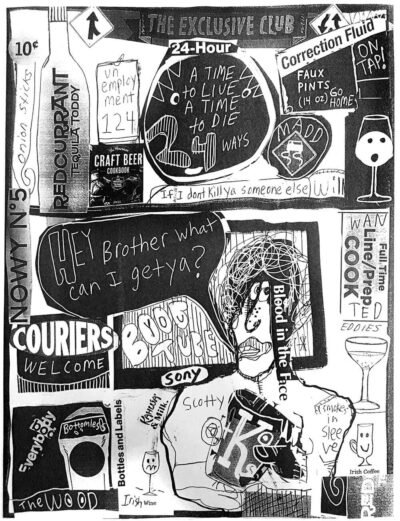 THE EXCLUSIVE CLUB
10¢
24-Hour
Correction Fluid
FAUX
PINTS
(14 oz)
GO
HOME
ON
TAP!
Onion Sticks
REDCURRANT
TEQUILA TODDY
un
employ
ment
124
A TIME
to LIVE
A TIME
to DIE
24
WAYS
MADD
CRAFT BEER
COOKBOOK
If I dont Killya someone else Will
NOWY Nº5
HEY Brother what
can I getya?
WAN
TED
Full Time
Line/Prep
COOK
EDDIES
Blood in the Face
COURIERS
WELCOME
BOOT
sony
Scotty
in
Sleeve
Everybody
Bottomless
Bottles and Labels
& Milk
The WOOD
Irish Wine
Irish Coffee